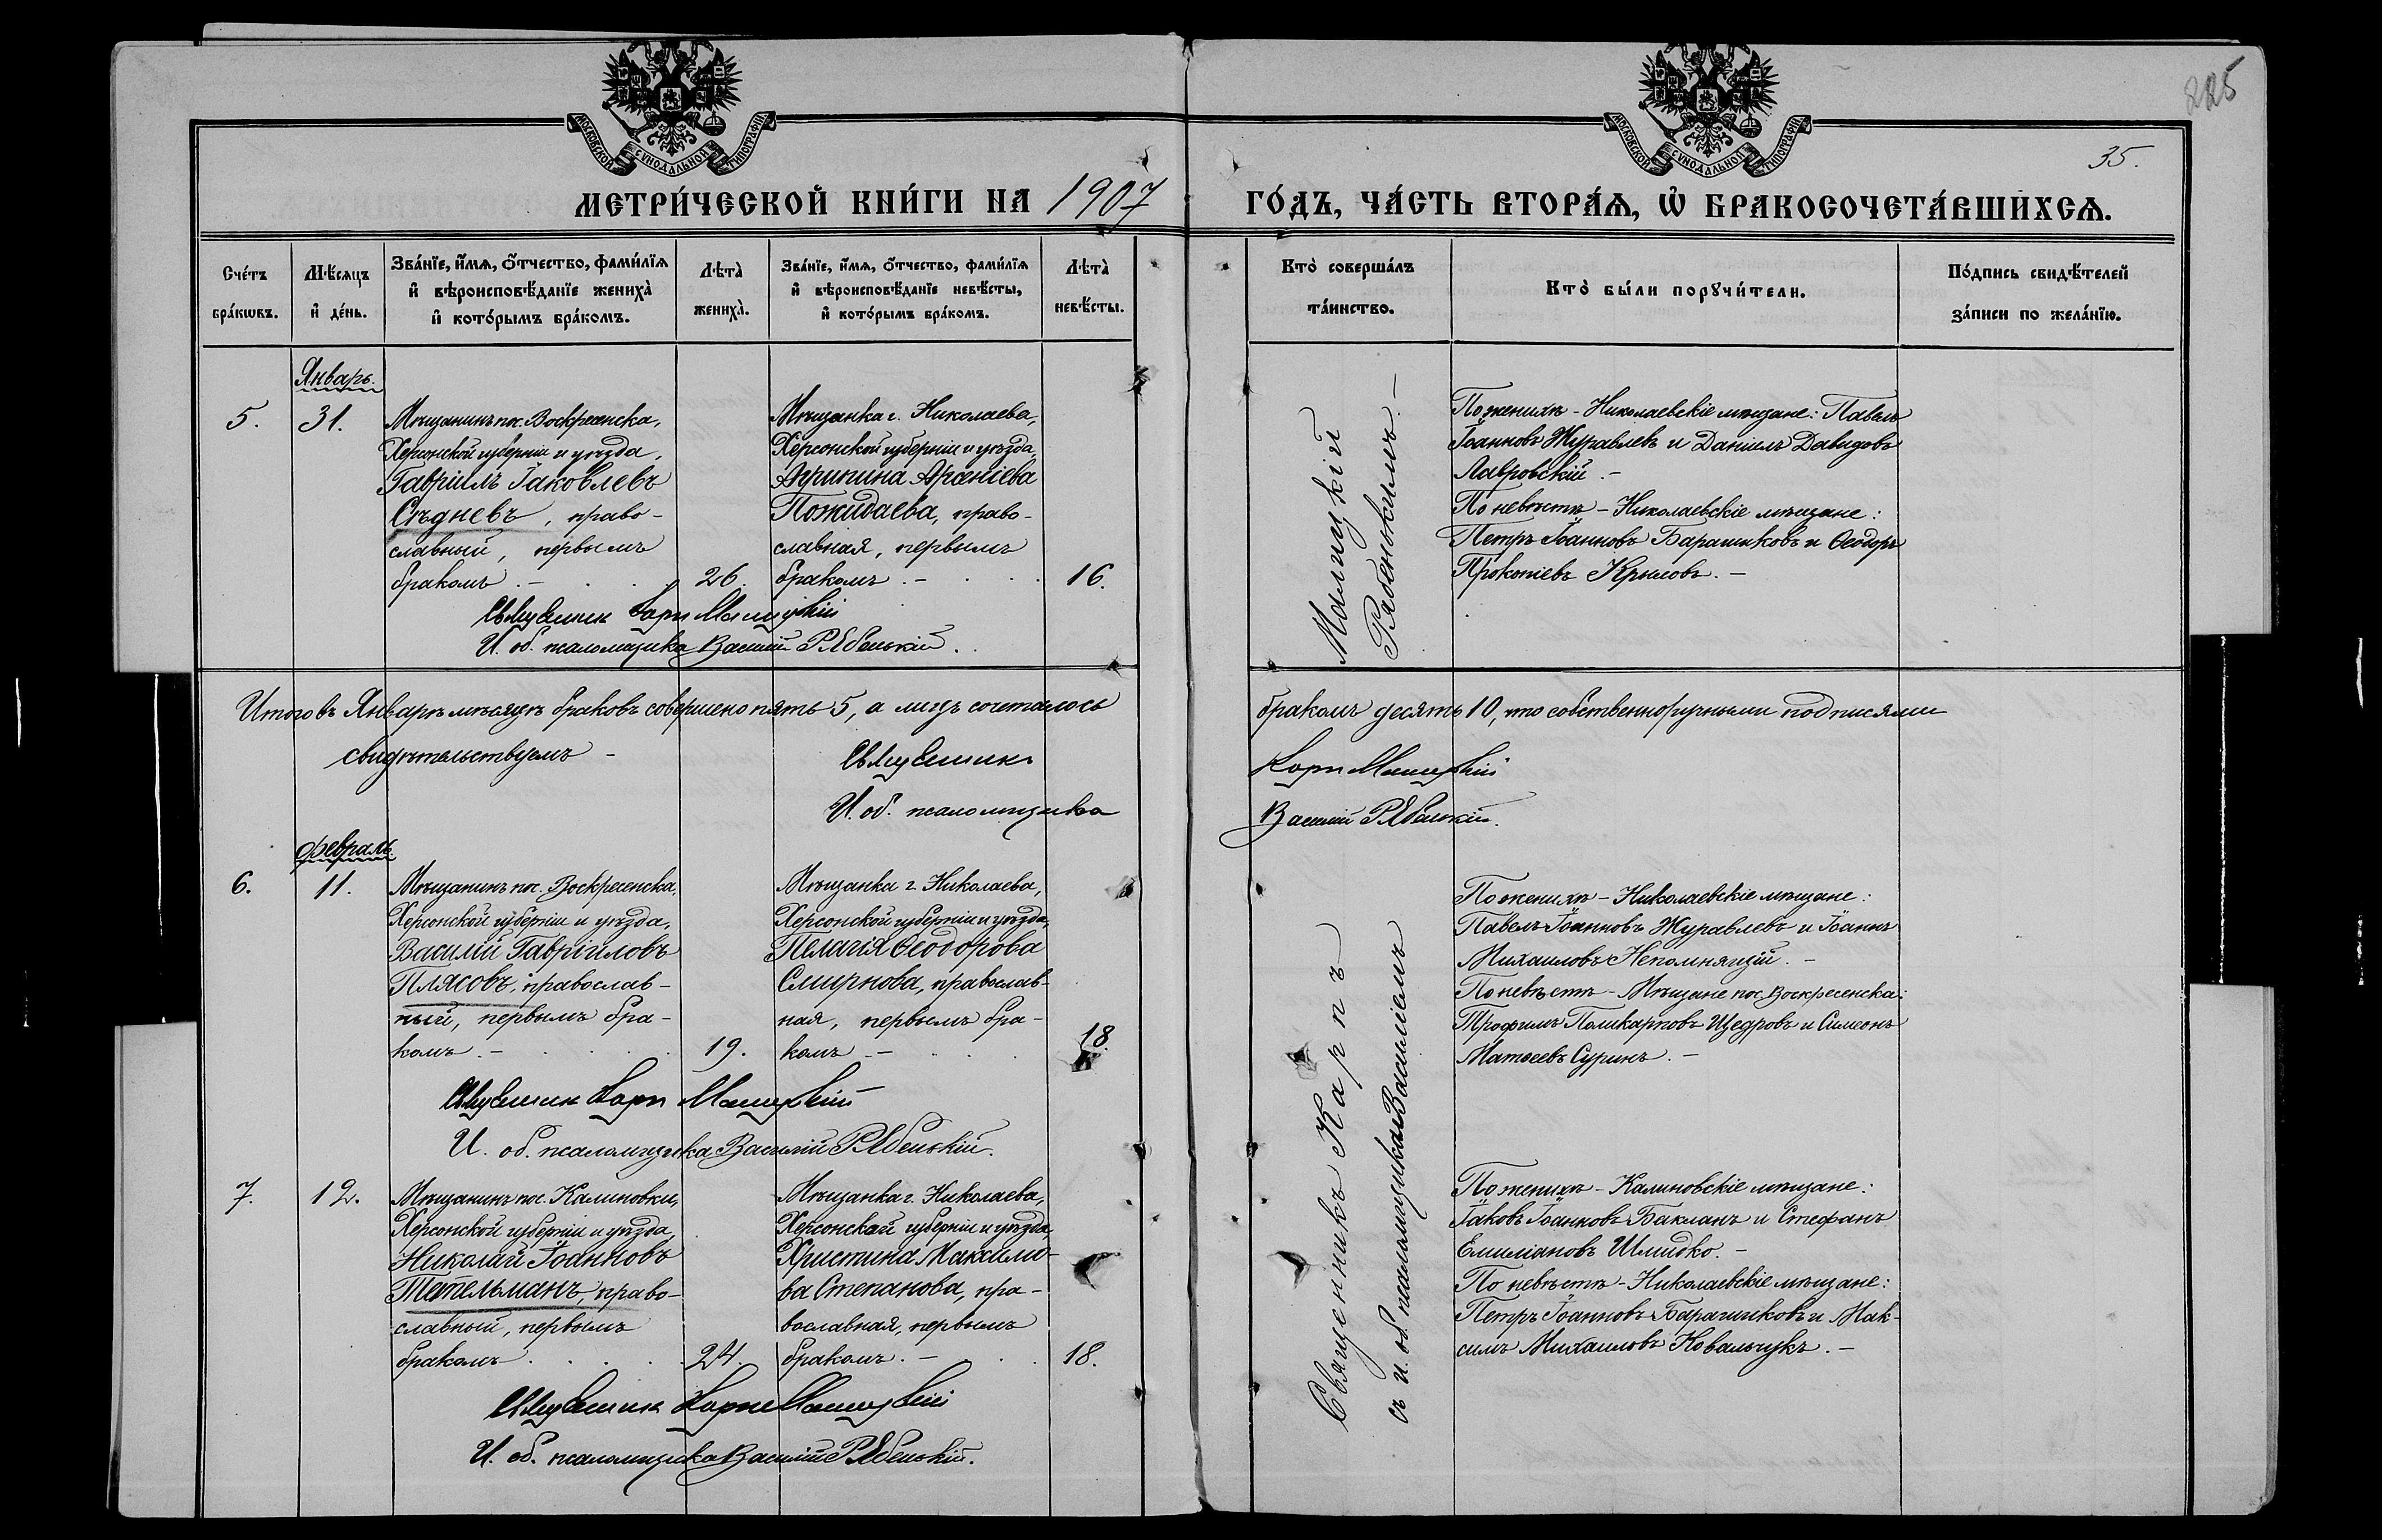 225
35.
МОСКОВСКОЙ СѴНОДАЛЬНОЙ ТИПОГРАФІИ
МОСКОВСКОЙ СѴНОДАЛЬНОЙ ТИПОГРАФІИ
МЕТРИ́ЧЕСКОЙ КНИ́ГИ НА 1907 ГО́ДЪ, ЧА́СТЬ ВТОРА́Ѧ, Ѽ БРАКОСОЧЕТА́ВШИХСѦ.
Сче́тъ бра́кωвъ.
Мѣ́сяцъ и҆ де́нь.
Зва́нїе, и҆́мѧ, ѻ҆́тчество, фами́лїѧ
и҆ вѣроисповѣ́данїе жениха̀
и҆ кото́рымъ бра́комъ.
Лѣта̀ жениха̀.
Зва́нїе, и҆́мѧ, ѻ҆́тчество, фами́лїѧ
и҆ вѣроисповѣ́данїе невѣ́сты,
и҆ кото́рымъ бра́комъ.
Лѣта̀ невѣ́сты.
Кто̀ соверша́лъ та́инство.
Кто̀ бы́ли порꙋчи́тели.
По́дпись свидѣ́телей за́писи по жела́нїю.
Январь.
5.
31.
Мѣщанинъ пос. Воскресенска,
Херсонской губерніи и уѣзда,
Гавріилъ Іаковлевъ
Сѣдневъ, право-
славный, первымъ
бракомъ. –
26.
Мѣщанка г. Николаева,
Херсонской губерніи и уѣзда,
Агрипина Арсеніева
Пожидаева, право-
славная, первымъ
бракомъ. –
16.
По женихѣ – Николаевскіе мѣщане: Павелъ
Іоанновъ Журавлевъ и Даніилъ Давидовъ
Лавровскій. –
По невѣстѣ – Николаевскіе мѣщане:
Петръ Іоанновъ Барашиковъ и Ѳеодоръ
Прокопіевъ Крыловъ. –
Священник Карп Малицкій
И. об. псаломщика Василий Рябенькій.
Итого въ Январѣ мѣсяцѣ браковъ совершено пять 5, а лицъ сочеталось бракомъ десять 10, что собственноручными подписями
свидѣтельствуемъ –
Священник Карп Малицкій
И. об. псаломщика Василий Рябенькій.
Февраль.
6.
11.
Мѣщанинъ пос. Воскресенска,
Херсонской губерніи и уѣзда,
Василій Гавріиловъ
Плясовъ, православ-
ный, первымъ бра-
комъ. –
19.
Мѣщанка г. Николаева,
Херсонской губерніи и уѣзда,
Пелагія Ѳеодорова
Смирнова, православ-
ная, первымъ бра-
комъ –
18.
По женихѣ – Николаевскіе мѣщане:
Павелъ Іоанновъ Журавлевъ и Іоаннъ
Михаиловъ Непомнящій. –
По невѣстѣ – Мѣщане пос. Воскресенска:
Трофимъ Поликарповъ Щедровъ и Симеонъ
Матѳеевъ Суринъ. –
Священник Карп Малицкій
И. об. псаломщика Василий Рябенькій.
7.
12.
Мѣщанинъ пос. Калиновки,
Херсонской губерніи и уѣзда,
Николай Іоанновъ
Тательманъ, право-
славный, первымъ
бракомъ
24.
Мѣщанка г. Николаева,
Херсонской губерніи и уѣзда
Христина Максимо-
ва Степанова, пра-
вославная, первымъ
бракомъ. –
18.
По женихѣ – Калиновскіе мѣщане:
Іаковъ Іоанновъ Бакланъ и Стефанъ
Емиліановъ Шмидко. –
По невѣстѣ – Николаевскіе мѣщане:
Петръ Іоанновъ Барашиковъ и Мак-
симъ Михаиловъ Ковальчукъ. –
Священник Карп Малицкій
И. об. псаломщика Василий Рябенькій.
Священникъ Карпъ Малицкій
съ и. об. псаломщика Василіемъ Рябенькимъ. –